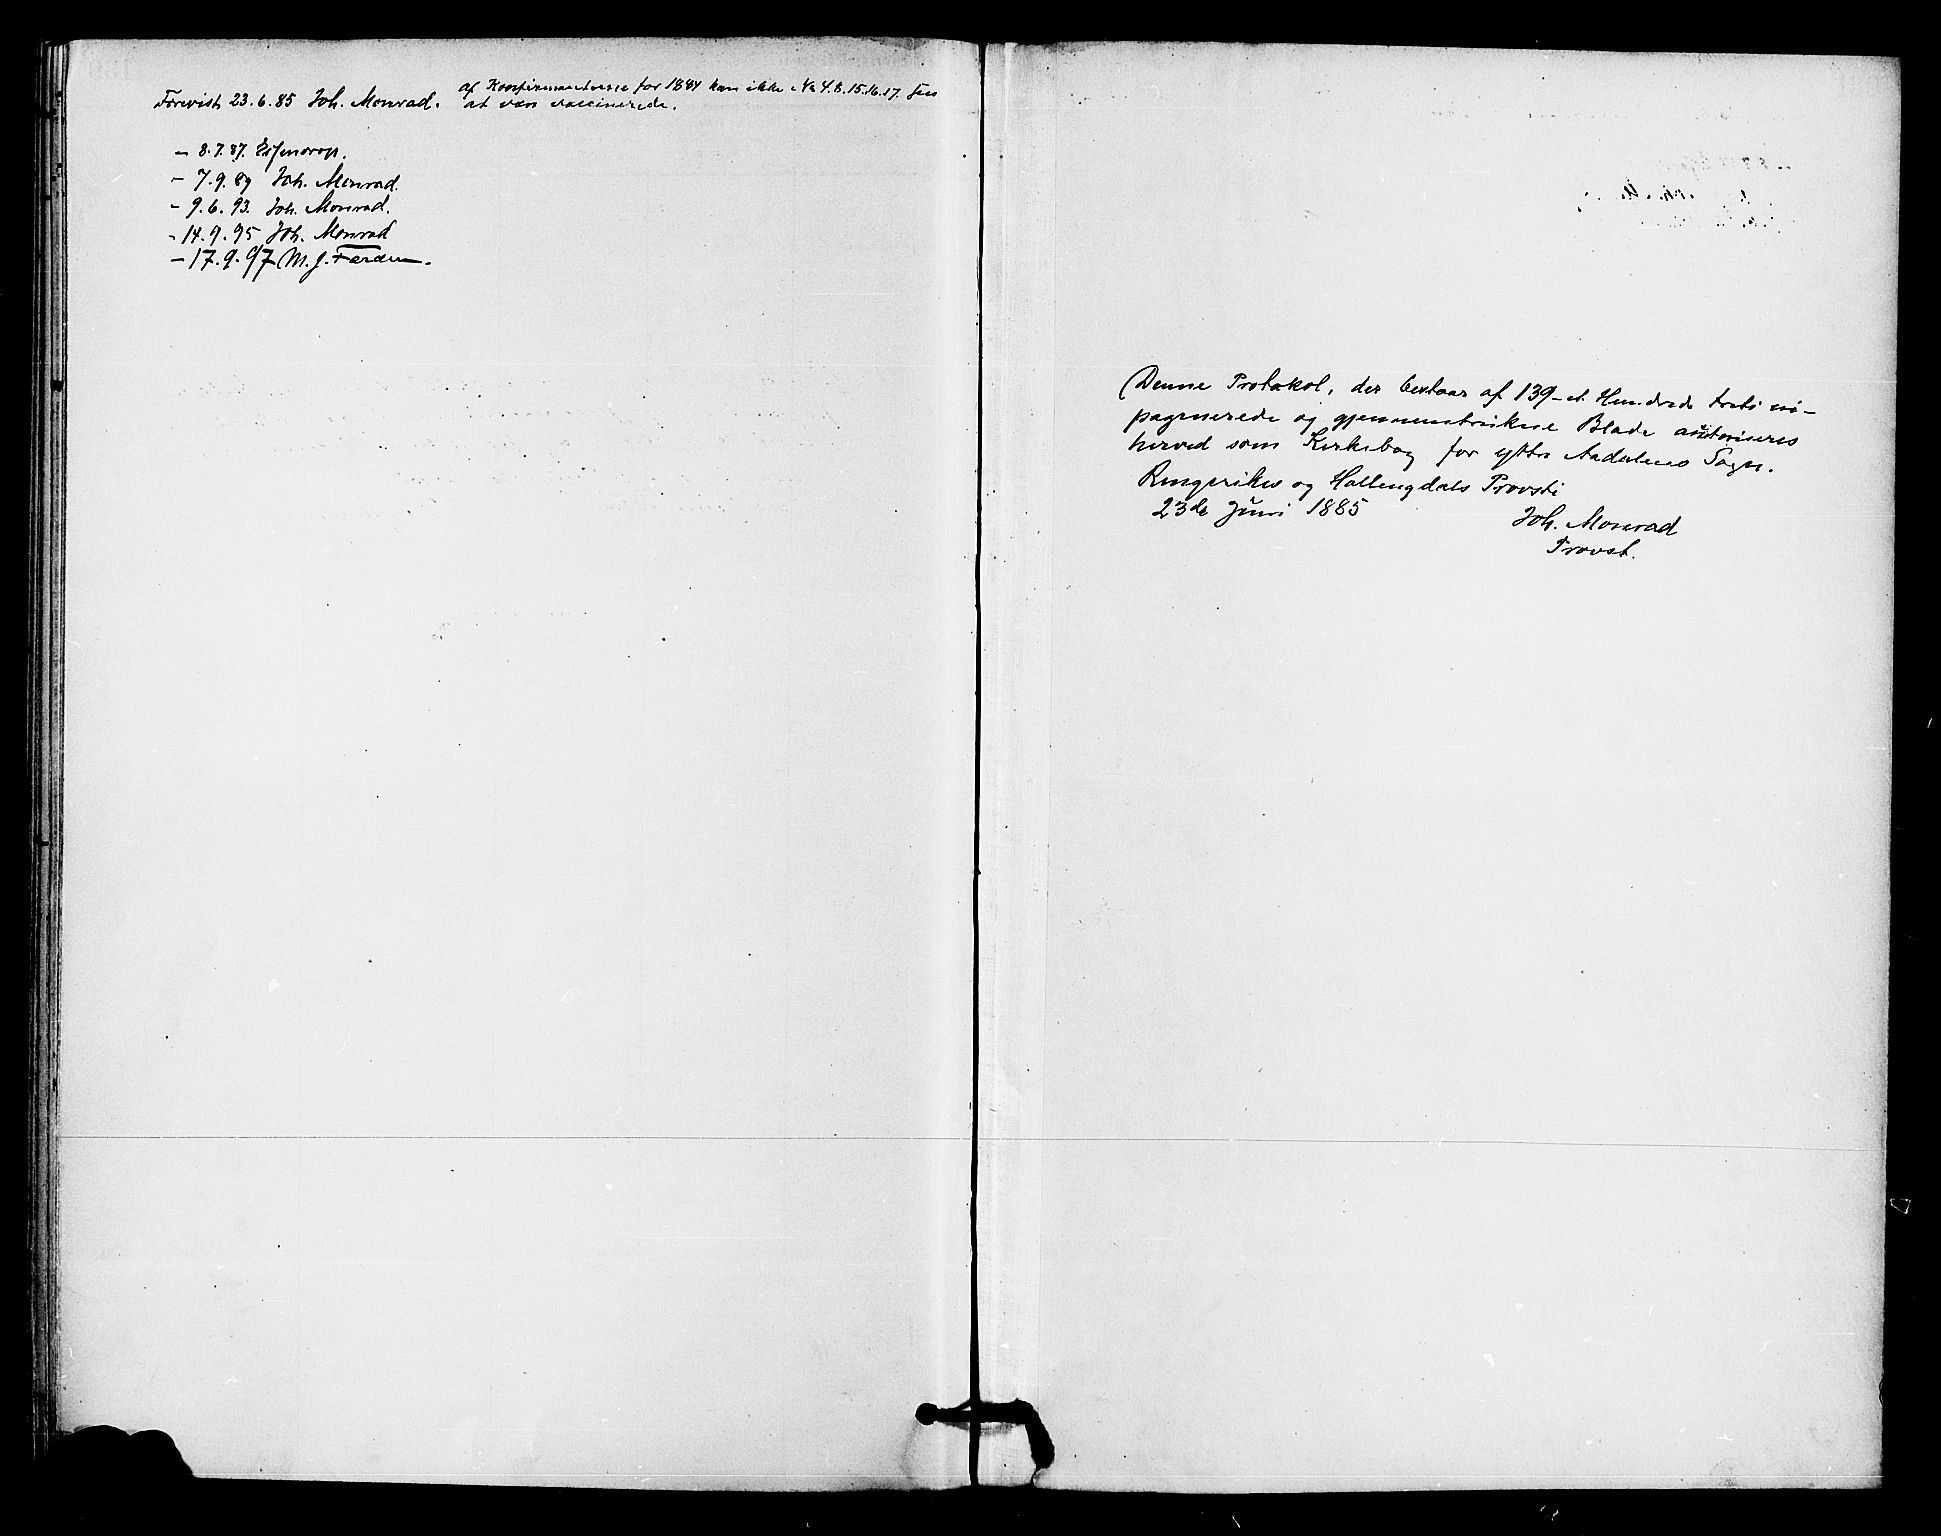 Forevist 23.6.85 Joh. Monrad. af Konfirmanterne for 1884 kan ikke No 4.8.15.16.17. sees
at være vaccinerede.
- 8.7.87. Essendrop.
- 7.9.89 Joh. Monrad.
- 9.6.93. Joh. Monrad.
- 14.9.95 Joh. Monrad
- 17.9.97 M. J. Færden.
Denne Protokol, der bestaar af 139 - et Hundrede treti ni -
paginerede og gjennemtrukne Blade autoriseres
herved som Kirkebog for ytre Aadalens Sogn.
Ringerikes og Hallingdals Provsti
23de Juni 1885
Joh. Monrad
Provst.